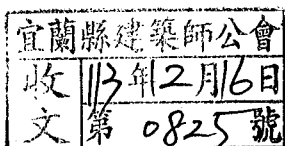 宜蘭縣建築師公會
收文 113年12月16日
第 0825 號